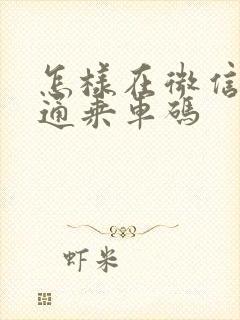 怎樣在微信
通乘車碼
虾米